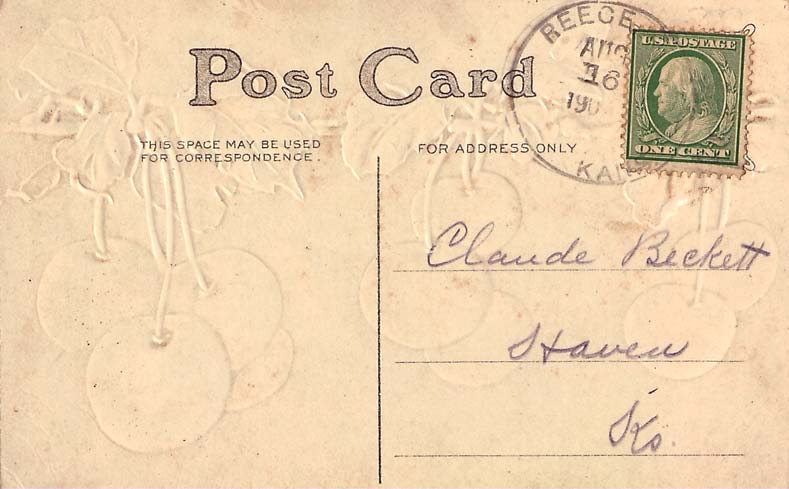 Post Card
THIS SPACE MAY BE USED
FOR CORRESPONDENCE.
FOR ADDRESS ONLY
REECE
AUG
16
190
KAN
U.S. POSTAGE
ONE CENT
Claude Beckett
Haven
Ks.